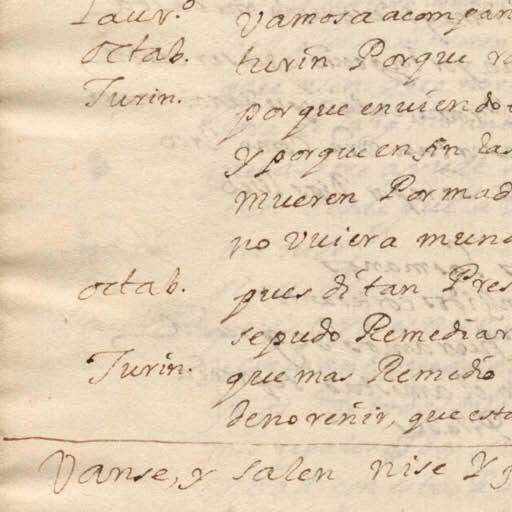 Laur.º Vamos a acompañ
octab. turin Porque
Turin. porque en viendo
y porque en fin las
mueren Por mad
no vuiera mun
octab. pues di tan Pres
se pudo Remediar
Turin. que mas Remedio
de no reñir, que esta
Vanse, y salen nise y